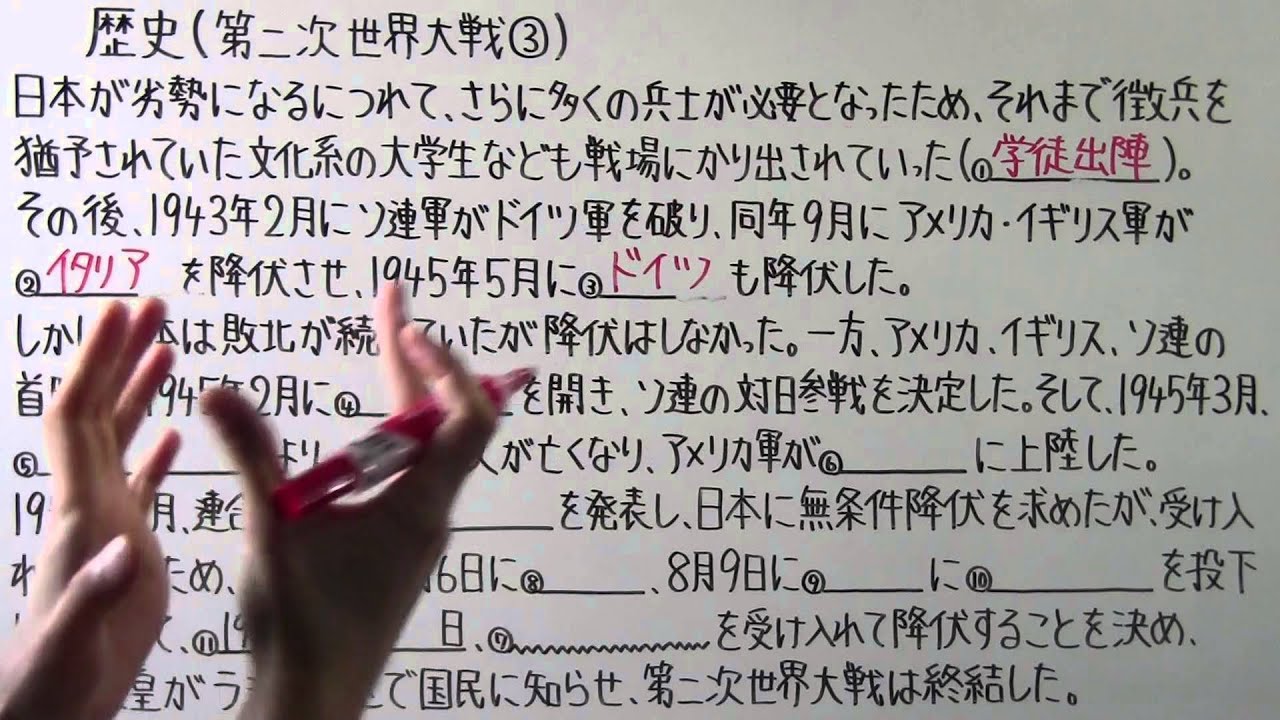 歴史(第二次世界大戦③)
日本が劣勢になるにつれて、さらに多くの兵士が必要となったため、それまで徴兵を
猶予されていた文化系の大学生なども戦場にかり出されていった(①学徒出陣)。
その後、1943年2月にソ連軍がドイツ軍を破り、同年9月にアメリカ・イギリス軍が
②イタリアを降伏させ、1945年5月に③ドイツも降伏した。
しか 本は敗北が続 ていたが降伏はしなかった。一方、アメリカ、イギリス、ソ連の
首 1945年2月に④ を開き、ソ連の対日参戦を決定した。そして、1945年3月、
⑤ より 人が亡くなり、アメリカ軍が⑥ に上陸した。
19 月、連合 を発表し、日本に無条件降伏を求めたが、受け入
れ ため、 月6日に⑧ 、8月9日に⑨ に⑩ を投下
て、⑪19 日、⑦ を受け入れて降伏することを決め、
皇がラ で国民に知らせ、第二次世界大戦は終結した。